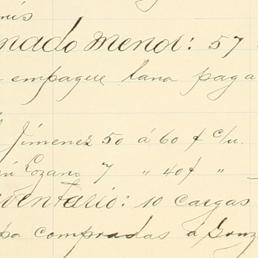 nado menor: 57
empaque lana paga
Jimenez 50 á 60 ¢ c/u.
Lozano 7 " 40¢ "
ventario: 10 cargas
compradas á Gonz